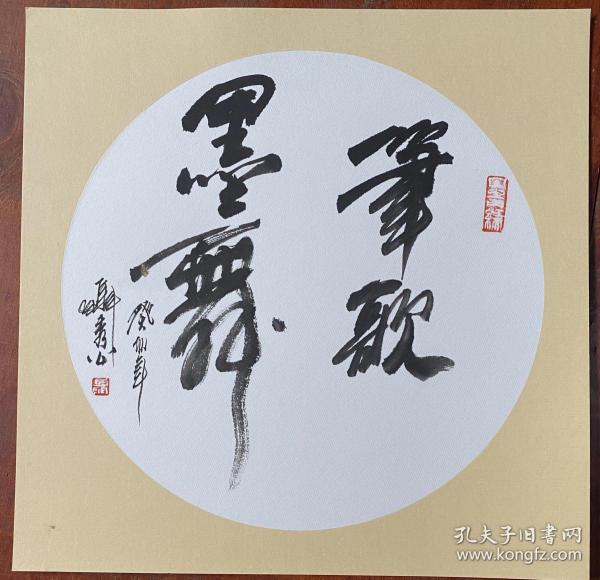 筆歌
墨舞
癸卯年
孔夫子旧书网
www.kongfz.com